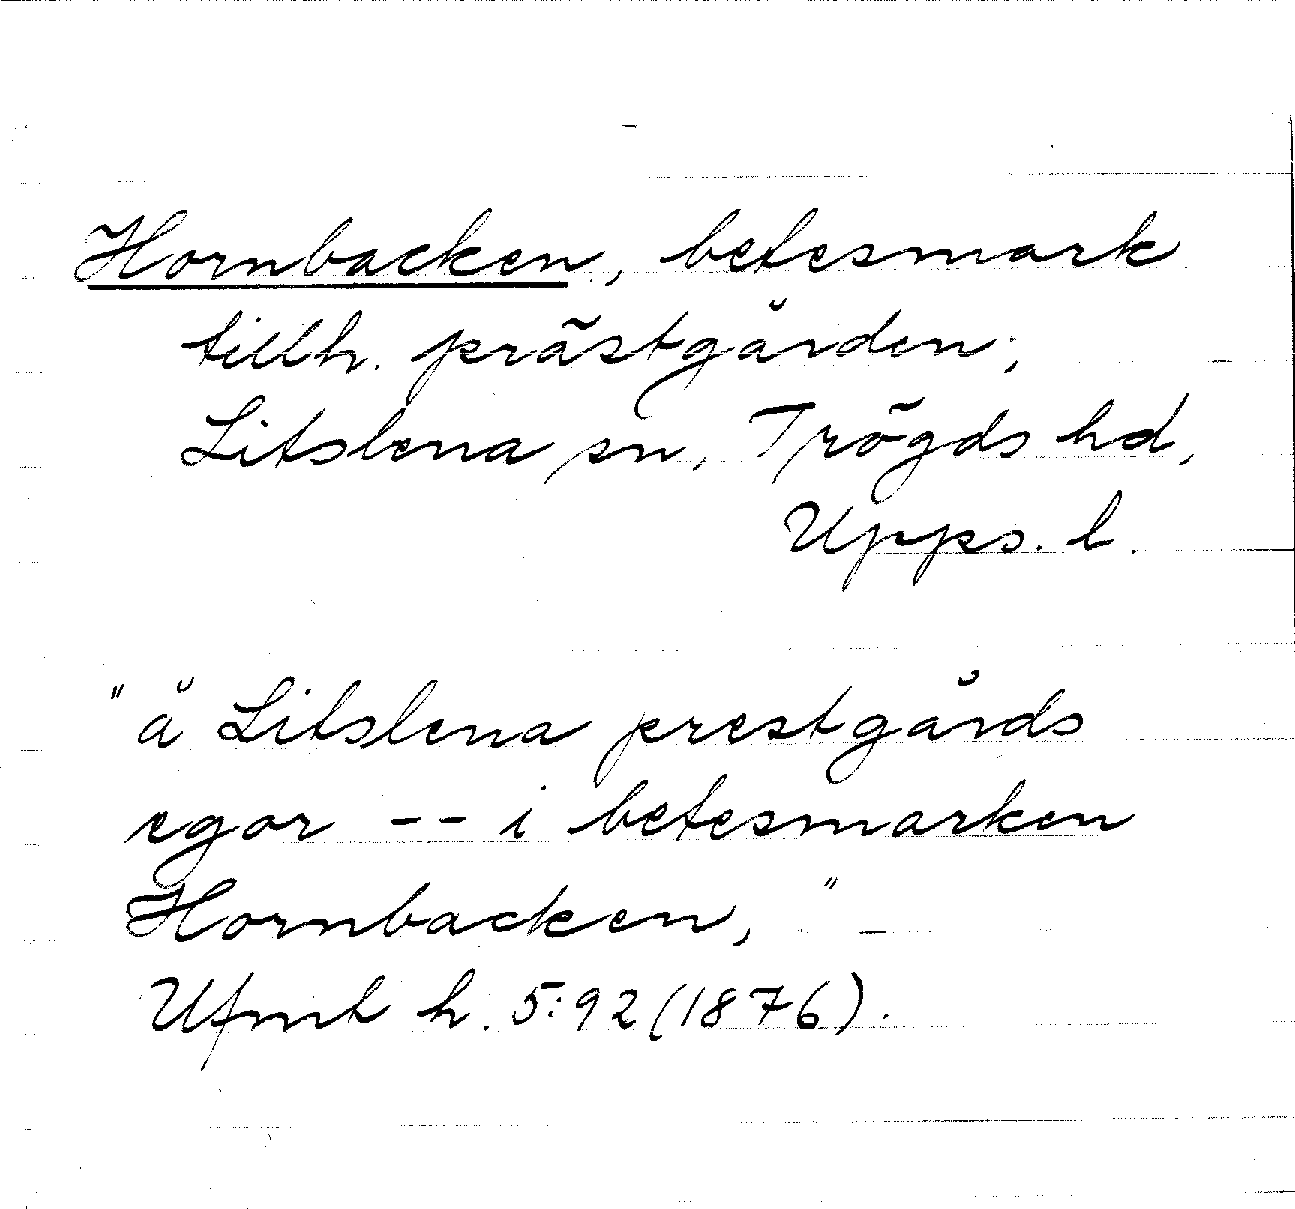 Hornbacken, betesmark
tillh. prästgården;
Litslena sn, Trögds hd,
Upps. l.
"å Litslena prestgårds
egor -- i betesmarken
Hornbacken, "
Ufmt h. 5:92 (1876).